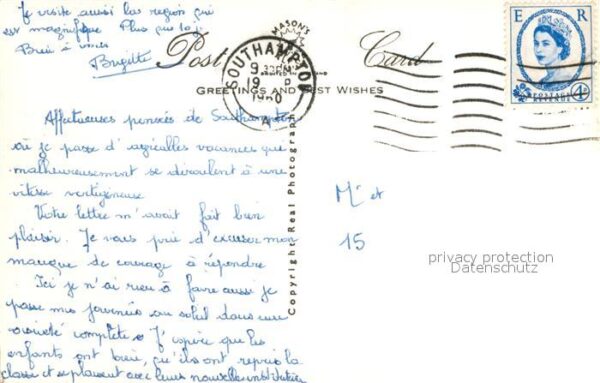 Je visite aussi la région qui
est magnifique Plus que 10 j.
Brigitte
MASON'S
Post Card
SOUTHAMPTON
19
1960
A
GREETINGS AND BEST WISHES
E R
POSTAGE
4D
Copyright Real Photograph
Affectueuses pensées de Southampton
où je passe d'agréables vacances que
malheureusement se déroulent à une
vitesse vertigineuse
Votre lettre m'avait fait bien
plaisir. Je vous prie d'excuser mon
manque de courage à répondre
Ici je n'ai rien à faire aussi je
passe mes journées au soleil dans une
oisiveté complète. J'espère que les
enfants ont bien, qu'ils ont repris la
classe et se plaisent avec leurs nouvelles institutrices
Mr et
15
privacy protection
Datenschutz